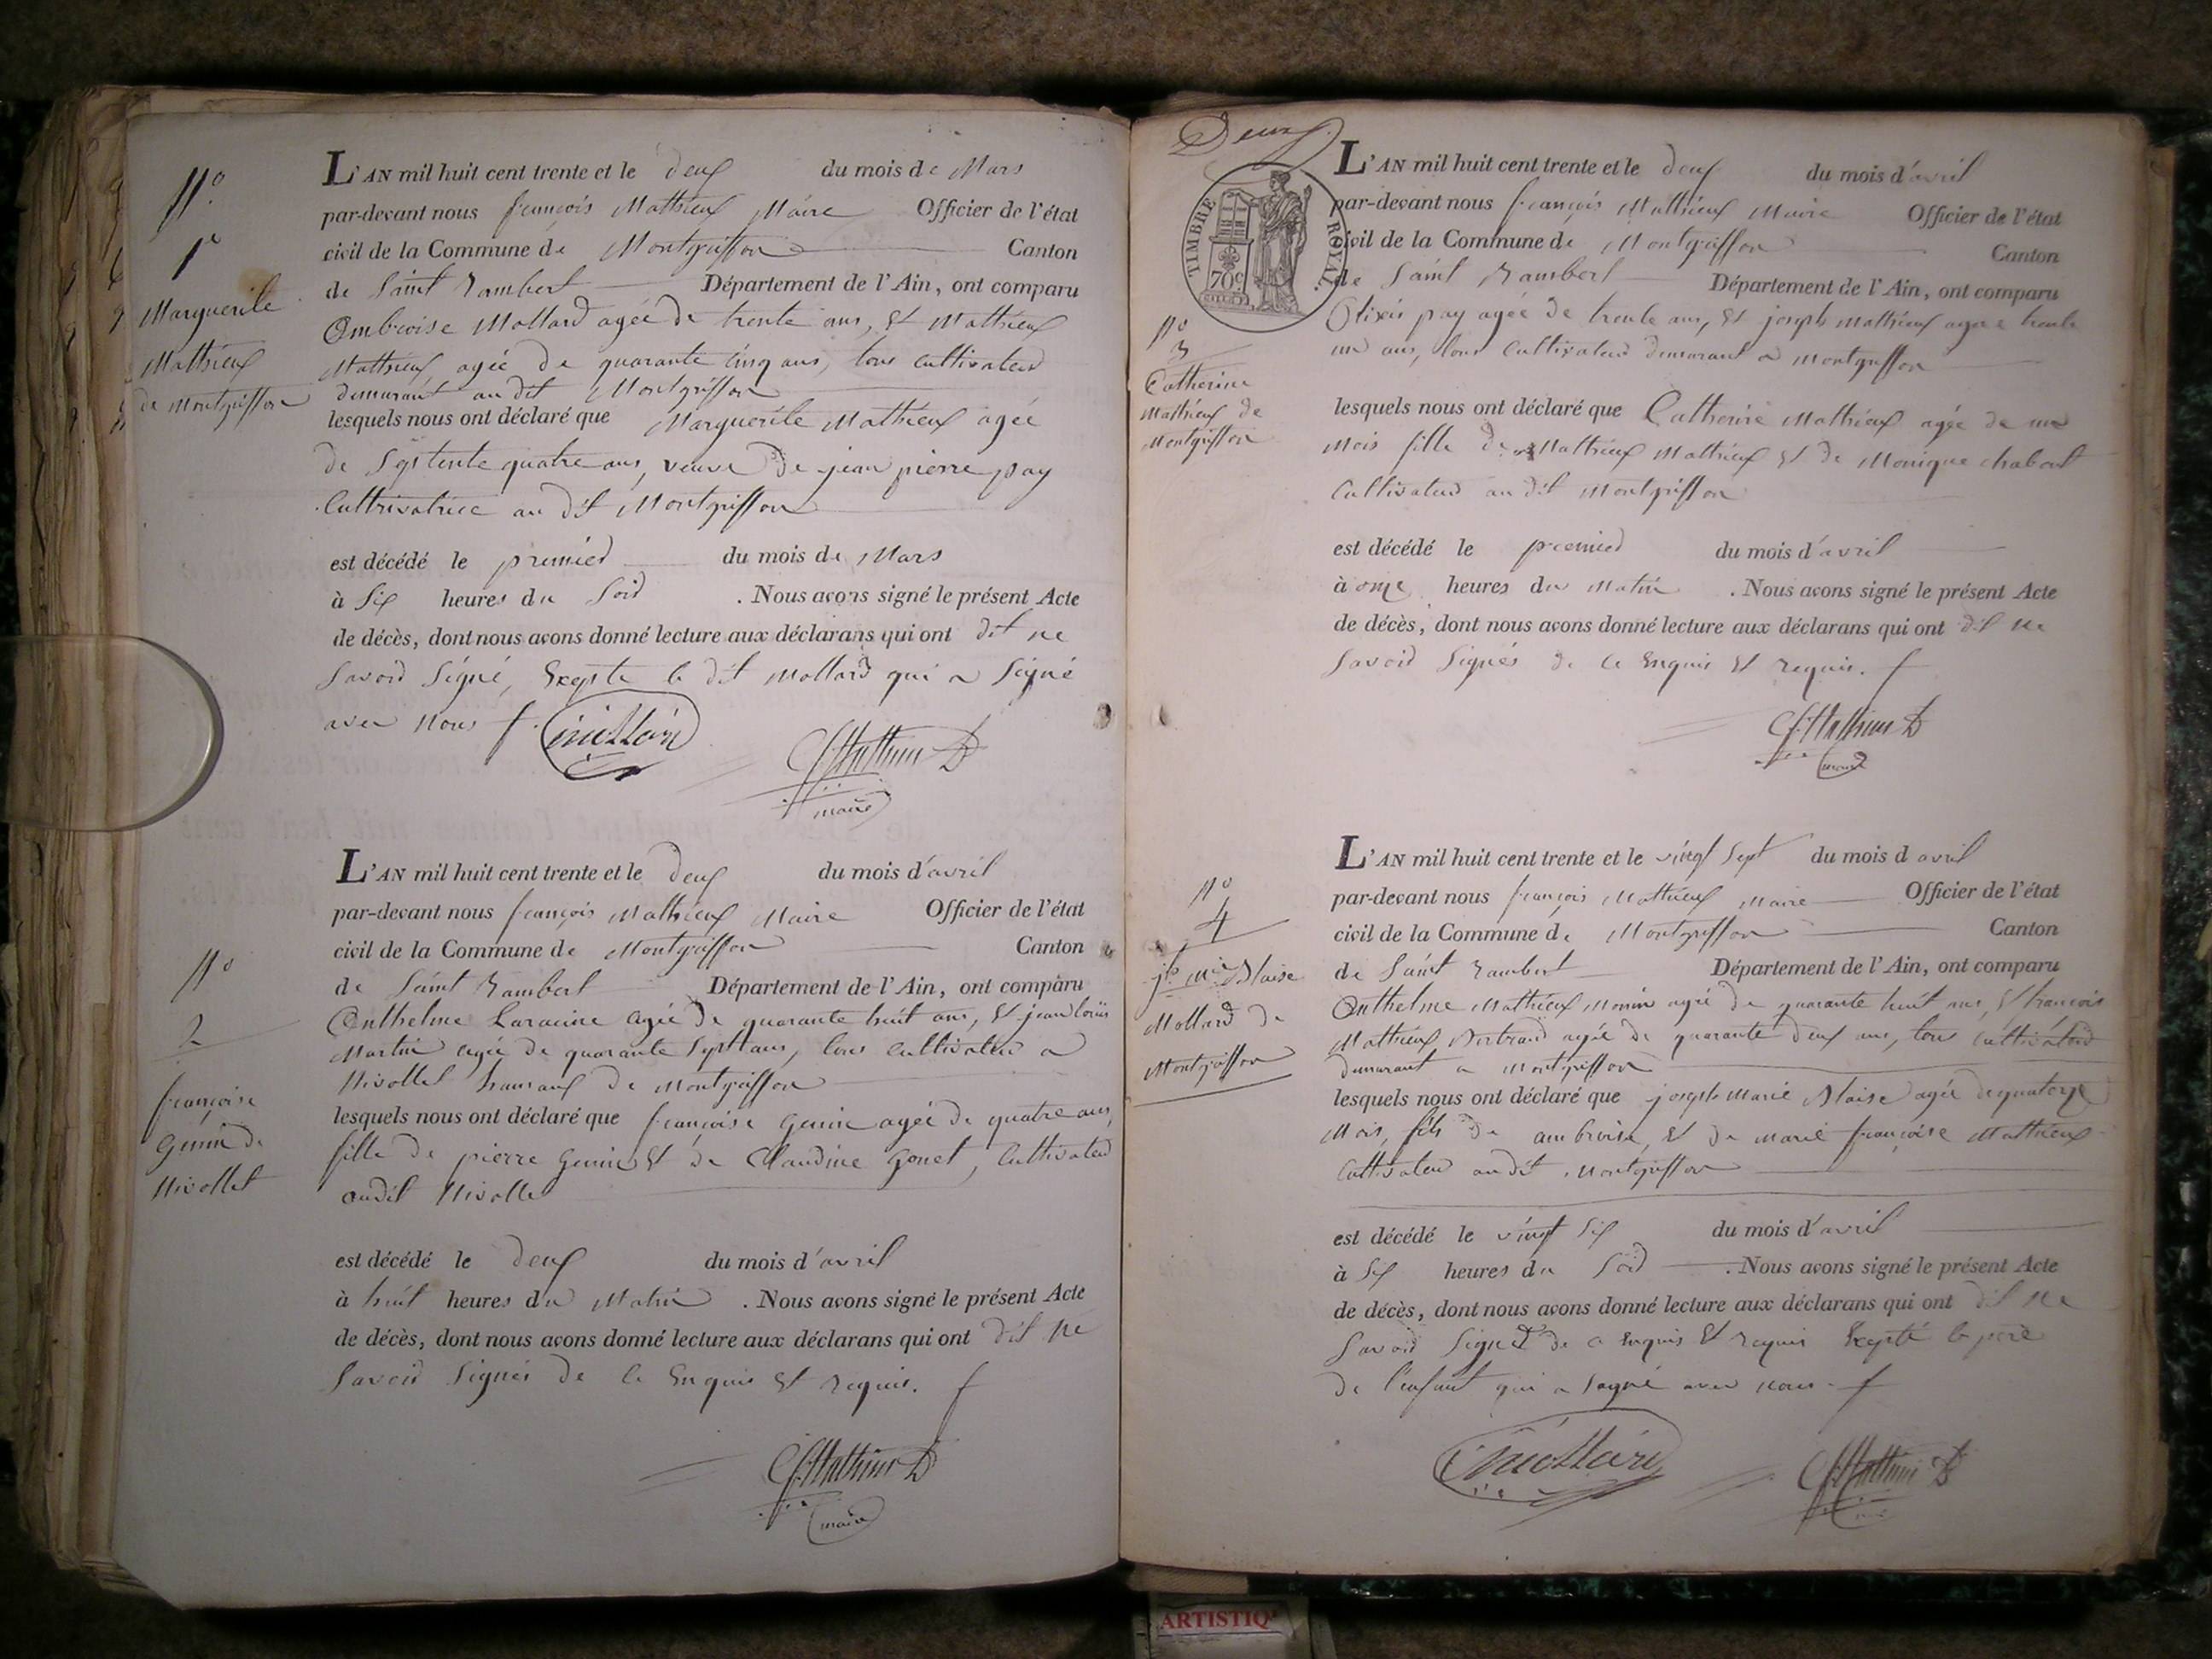 N.o
1.e
Marguerite
Mathieux
de montgriffon
L'AN mil huit cent trente et le deux du mois de Mars
par-devant nous françois Mathieux Maire Officier de l'état
civil de la Commune de Montgriffon Canton
de Saint Rambert Département de l'Ain, ont comparu
Ambroise Mollard agée de trente ans, Et Mathieux
Mathieux agée de quarante cinq ans, tous cultivateurs
demurant au dit Montgriffon
lesquels nous ont déclaré que Marguerite Mathieux agée
de Septente quatre ans, veuve de jean pierre pay
Cultrivatrice au dit Montgriffon
est décédé le premier du mois de Mars
à Six heures du Soir . Nous avons signé le présent Acte
de décès, dont nous avons donné lecture aux déclarans qui ont dit ne
Savoir Signé, Excepte le dit Mollard qui a Signé
avec Nous
maire
N.o
2
françoise
Genin de
Nivollet
L'AN mil huit cent trente et le deux du mois d'avril
par-devant nous françois Mathieux Maire Officier de l'état
civil de la Commune de Montgriffon Canton
de Saint Rambert Département de l'Ain, ont comparu
Anthelme Laracine agée de quarante huit ans, Et jean louis
Martin agée de quarante Sept ans, tous cultivateur a
Nivollet hamaux de Montgriffon
lesquels nous ont déclaré que françoise Genin agée de quatre ans,
fille de pierre Genin Et de Claudine Gonet, Cultivateur
audit Nivolle
est décédé le deux du mois d'avril
à huit heures du Matin . Nous avons signé le présent Acte
de décès, dont nous avons donné lecture aux déclarans qui ont dit Ne
Savoir Signés de Ce Enquis Et requis.
maire
Deux
TIMBRE ROYAL.
70c
L'AN mil huit cent trente et le deux du mois d'avril
par-devant nous françois Mathieux Maire Officier de l'état
civil de la Commune de Montgriffon Canton
de Saint Rambert Département de l'Ain, ont comparu
pay agée de trente ans, Et joseph Mathieux agée trente
un ans, tous Cultivateur demurant a Montgriffon
N.o
3
Catherine
Mathieux de
Montgriffon
lesquels nous ont déclaré que Catherine Mathieux agée de un
Mois fille de Mathieux Mathieux Et de Monique chabout
Cultivateur au dit Montgriffon
est décédé le premier du mois d'avril
à onze heures du Matin . Nous avons signé le présent Acte
de décès, dont nous avons donné lecture aux déclarans qui ont dit Ne
Savoir Signés de Ce Enquis Et requis.
maire
N.o
4
jph Mie Blaise
Mollard de
Montgriffon
L'AN mil huit cent trente et le vingt Sept du mois d avril
par-devant nous françois Mathieux Maire Officier de l'état
civil de la Commune de Montgriffon Canton
de Saint Rambert Département de l'Ain, ont comparu
Anthelme Mathieux Monin agée de quarante huit ans, Et françois
Mathieux Bertrand agée de quarante deux ans, tous Cultivateur
demurant a Montgriffon
lesquels nous ont déclaré que joseph Marie Blaise agée de quatorze
Mois, fils de ambroise, Et de Marie françoise Mathieux
Cultivateur au dit Montgriffon
est décédé le vingt Six du mois d'avril
à Six heures du Soir . Nous avons signé le présent Acte
de décès, dont nous avons donné lecture aux déclarans qui ont dit Ne
Savoir Signer de Ce Enquis Et requis Excepté le père
de l'enfant qui a Signé avec Nous
ARTISTIQ